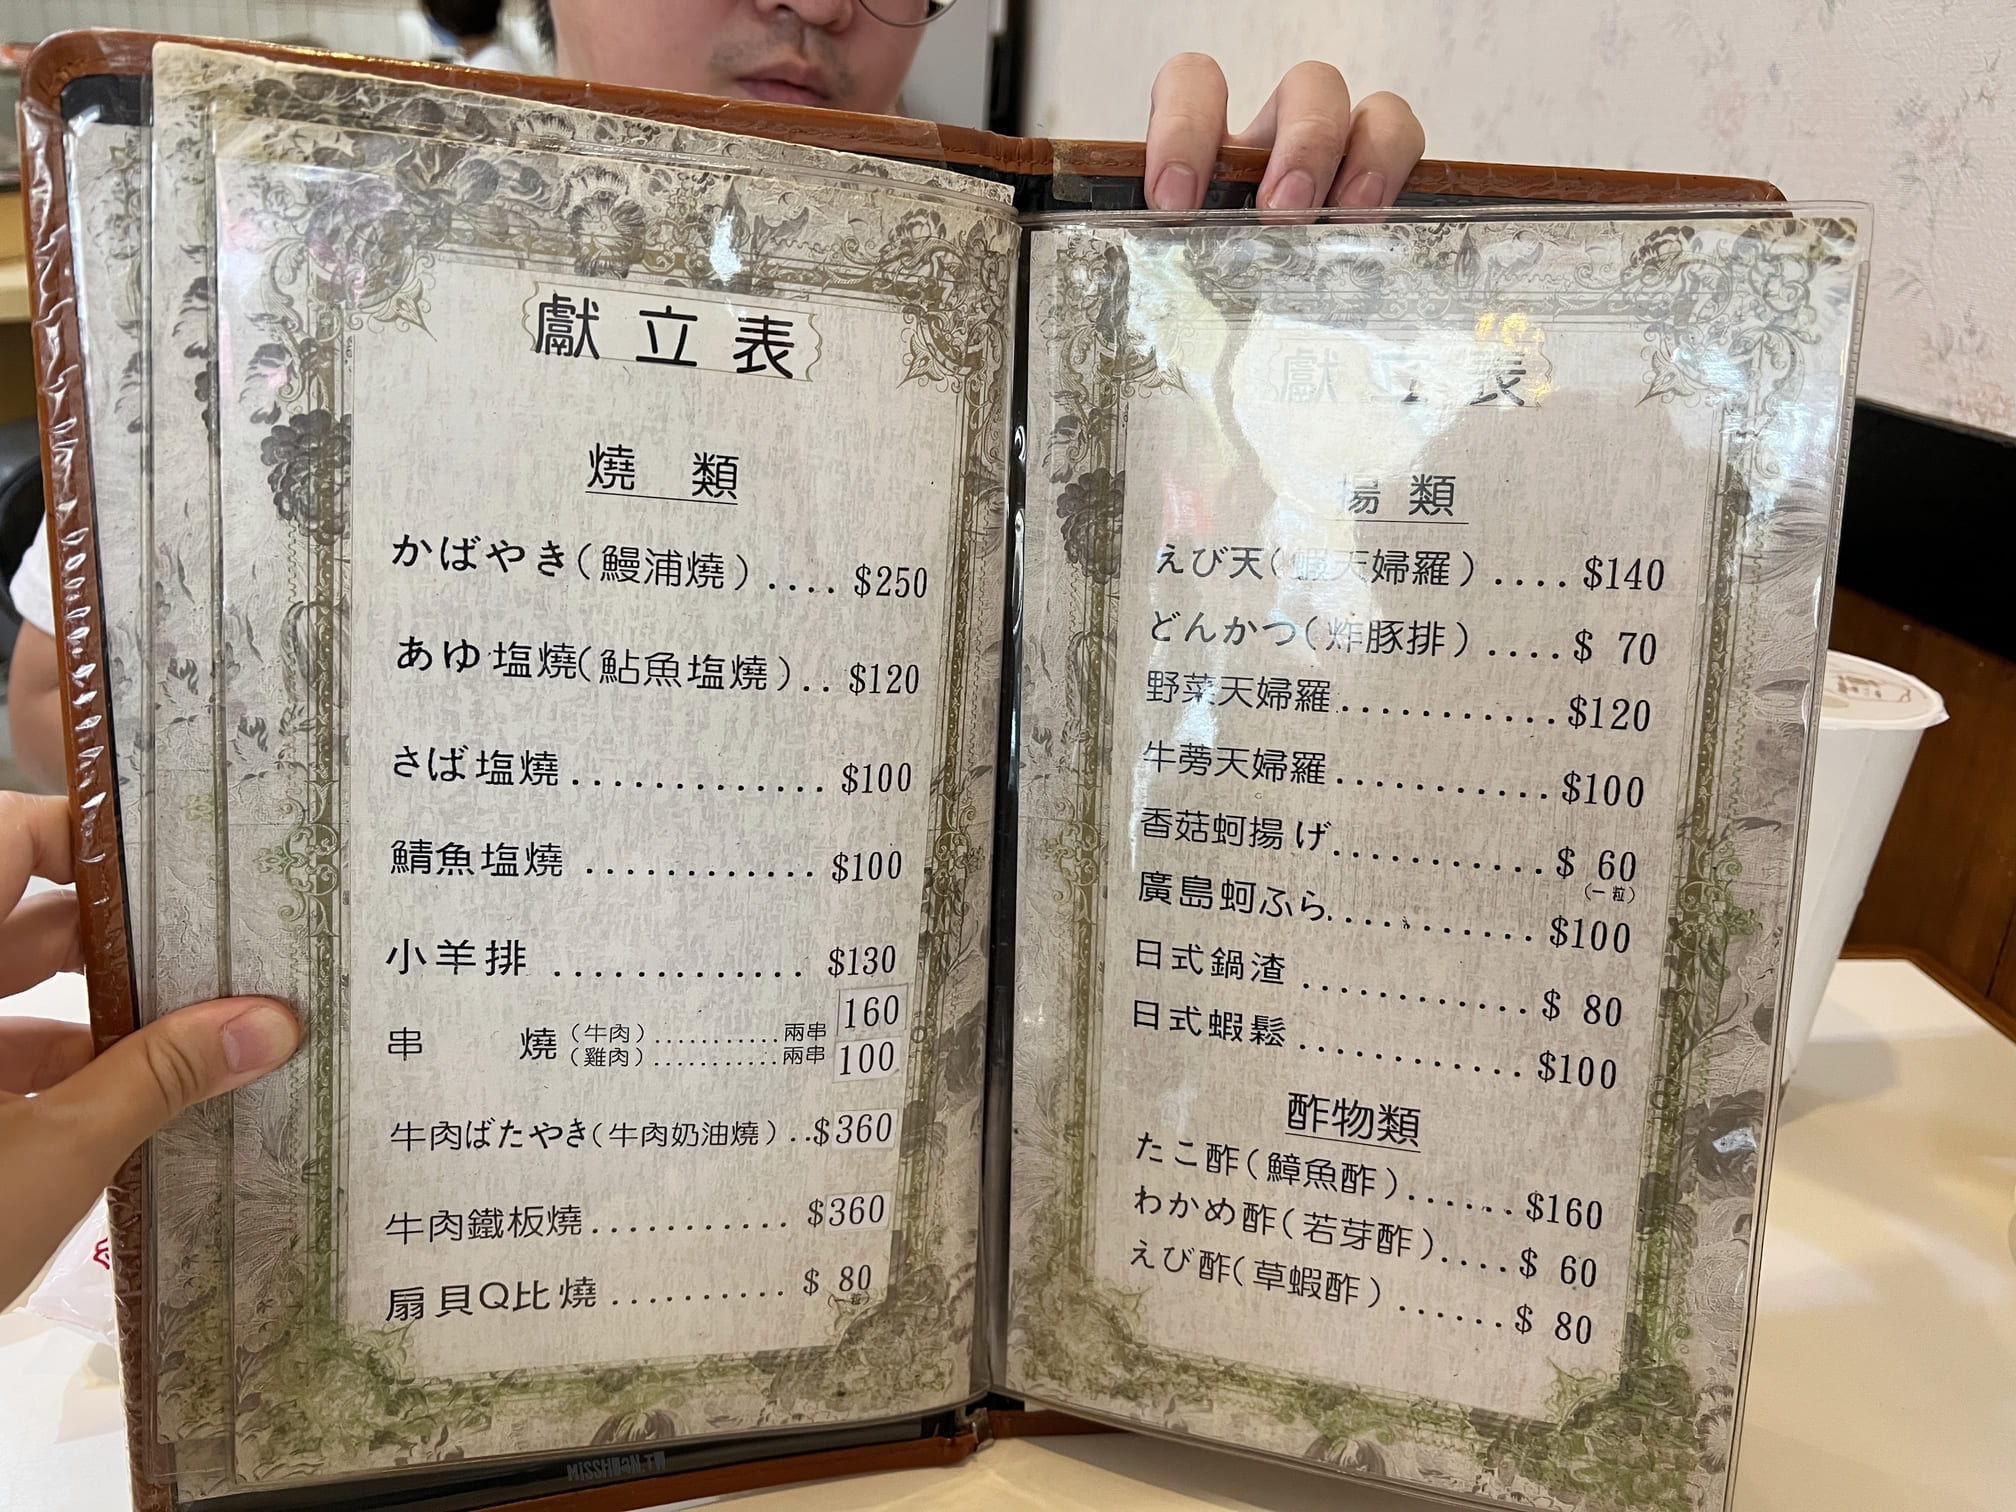 獻立表
燒 類
かばやき(鰻浦燒).... $250
あゆ塩燒(鮎魚塩燒).. $120
さば塩燒............. $100
鯖魚塩燒............. $100
小羊排............. $130
串 燒 (牛肉)...........兩串 160
(雞肉)...........兩串 100
牛肉ばたやき(牛肉奶油燒)..$360
牛肉鐵板燒........... $360
扇貝Q比燒.......... $ 80
獻立表
揚類
えび天(蝦天婦羅).... $140
どんかつ(炸豚排)....$ 70
野菜天婦羅...........$120
牛蒡天婦羅...........$100
香菇蚵揚げ...........$ 60
(一粒)
廣島蚵ふら...........$100
日式鍋渣............$ 80
日式蝦鬆............$100
酢物類
たこ酢(鱆魚酢)......$160
わかめ酢(若芽酢)....$ 60
えび酢(草蝦酢)......$ 80
MiSSHUaN.TW